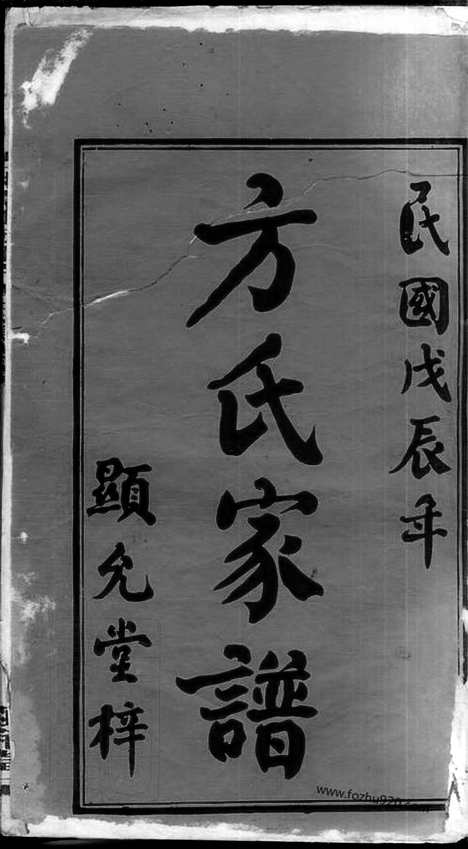 民國戊辰年
方氏家譜
顯允堂梓